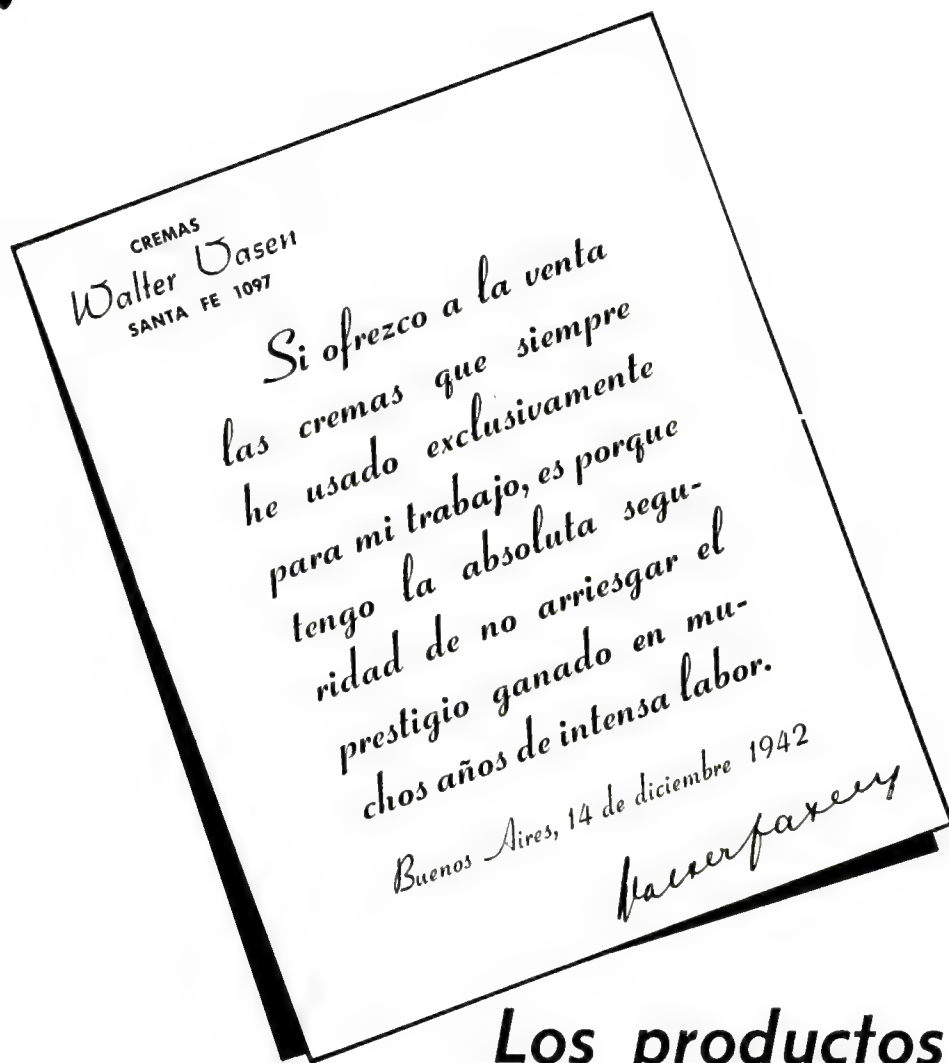 CREMAS
Walter Vasen
SANTA FE 1097
Si ofrezco a la venta
las cremas que siempre
he usado exclusivamente
para mi trabajo, es porque
tengo la absoluta segu-
ridad de no arriesgar el
prestigio ganado en mu-
chos años de intensa labor.
Buenos Aires, 14 de diciembre 1942
Los productos